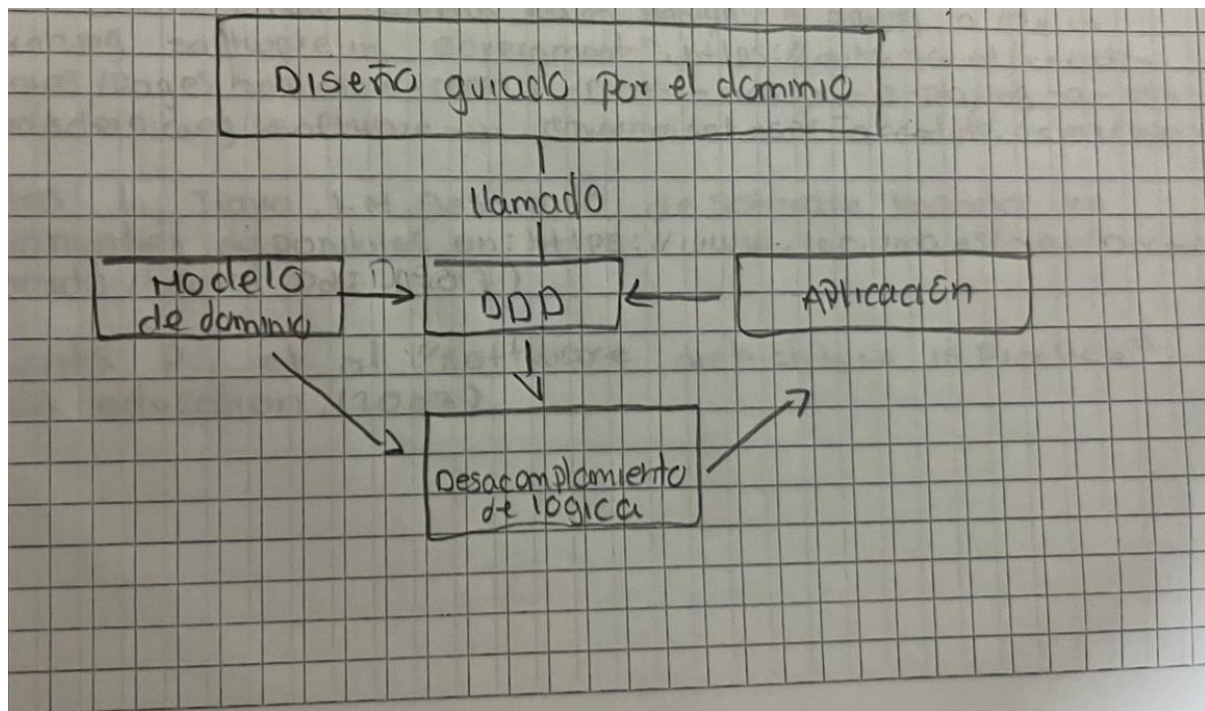 Diseño guiado por el dominio
llamado
Modelo
de dominio
DDD
Aplicación
Desacomplamiento
de lógica